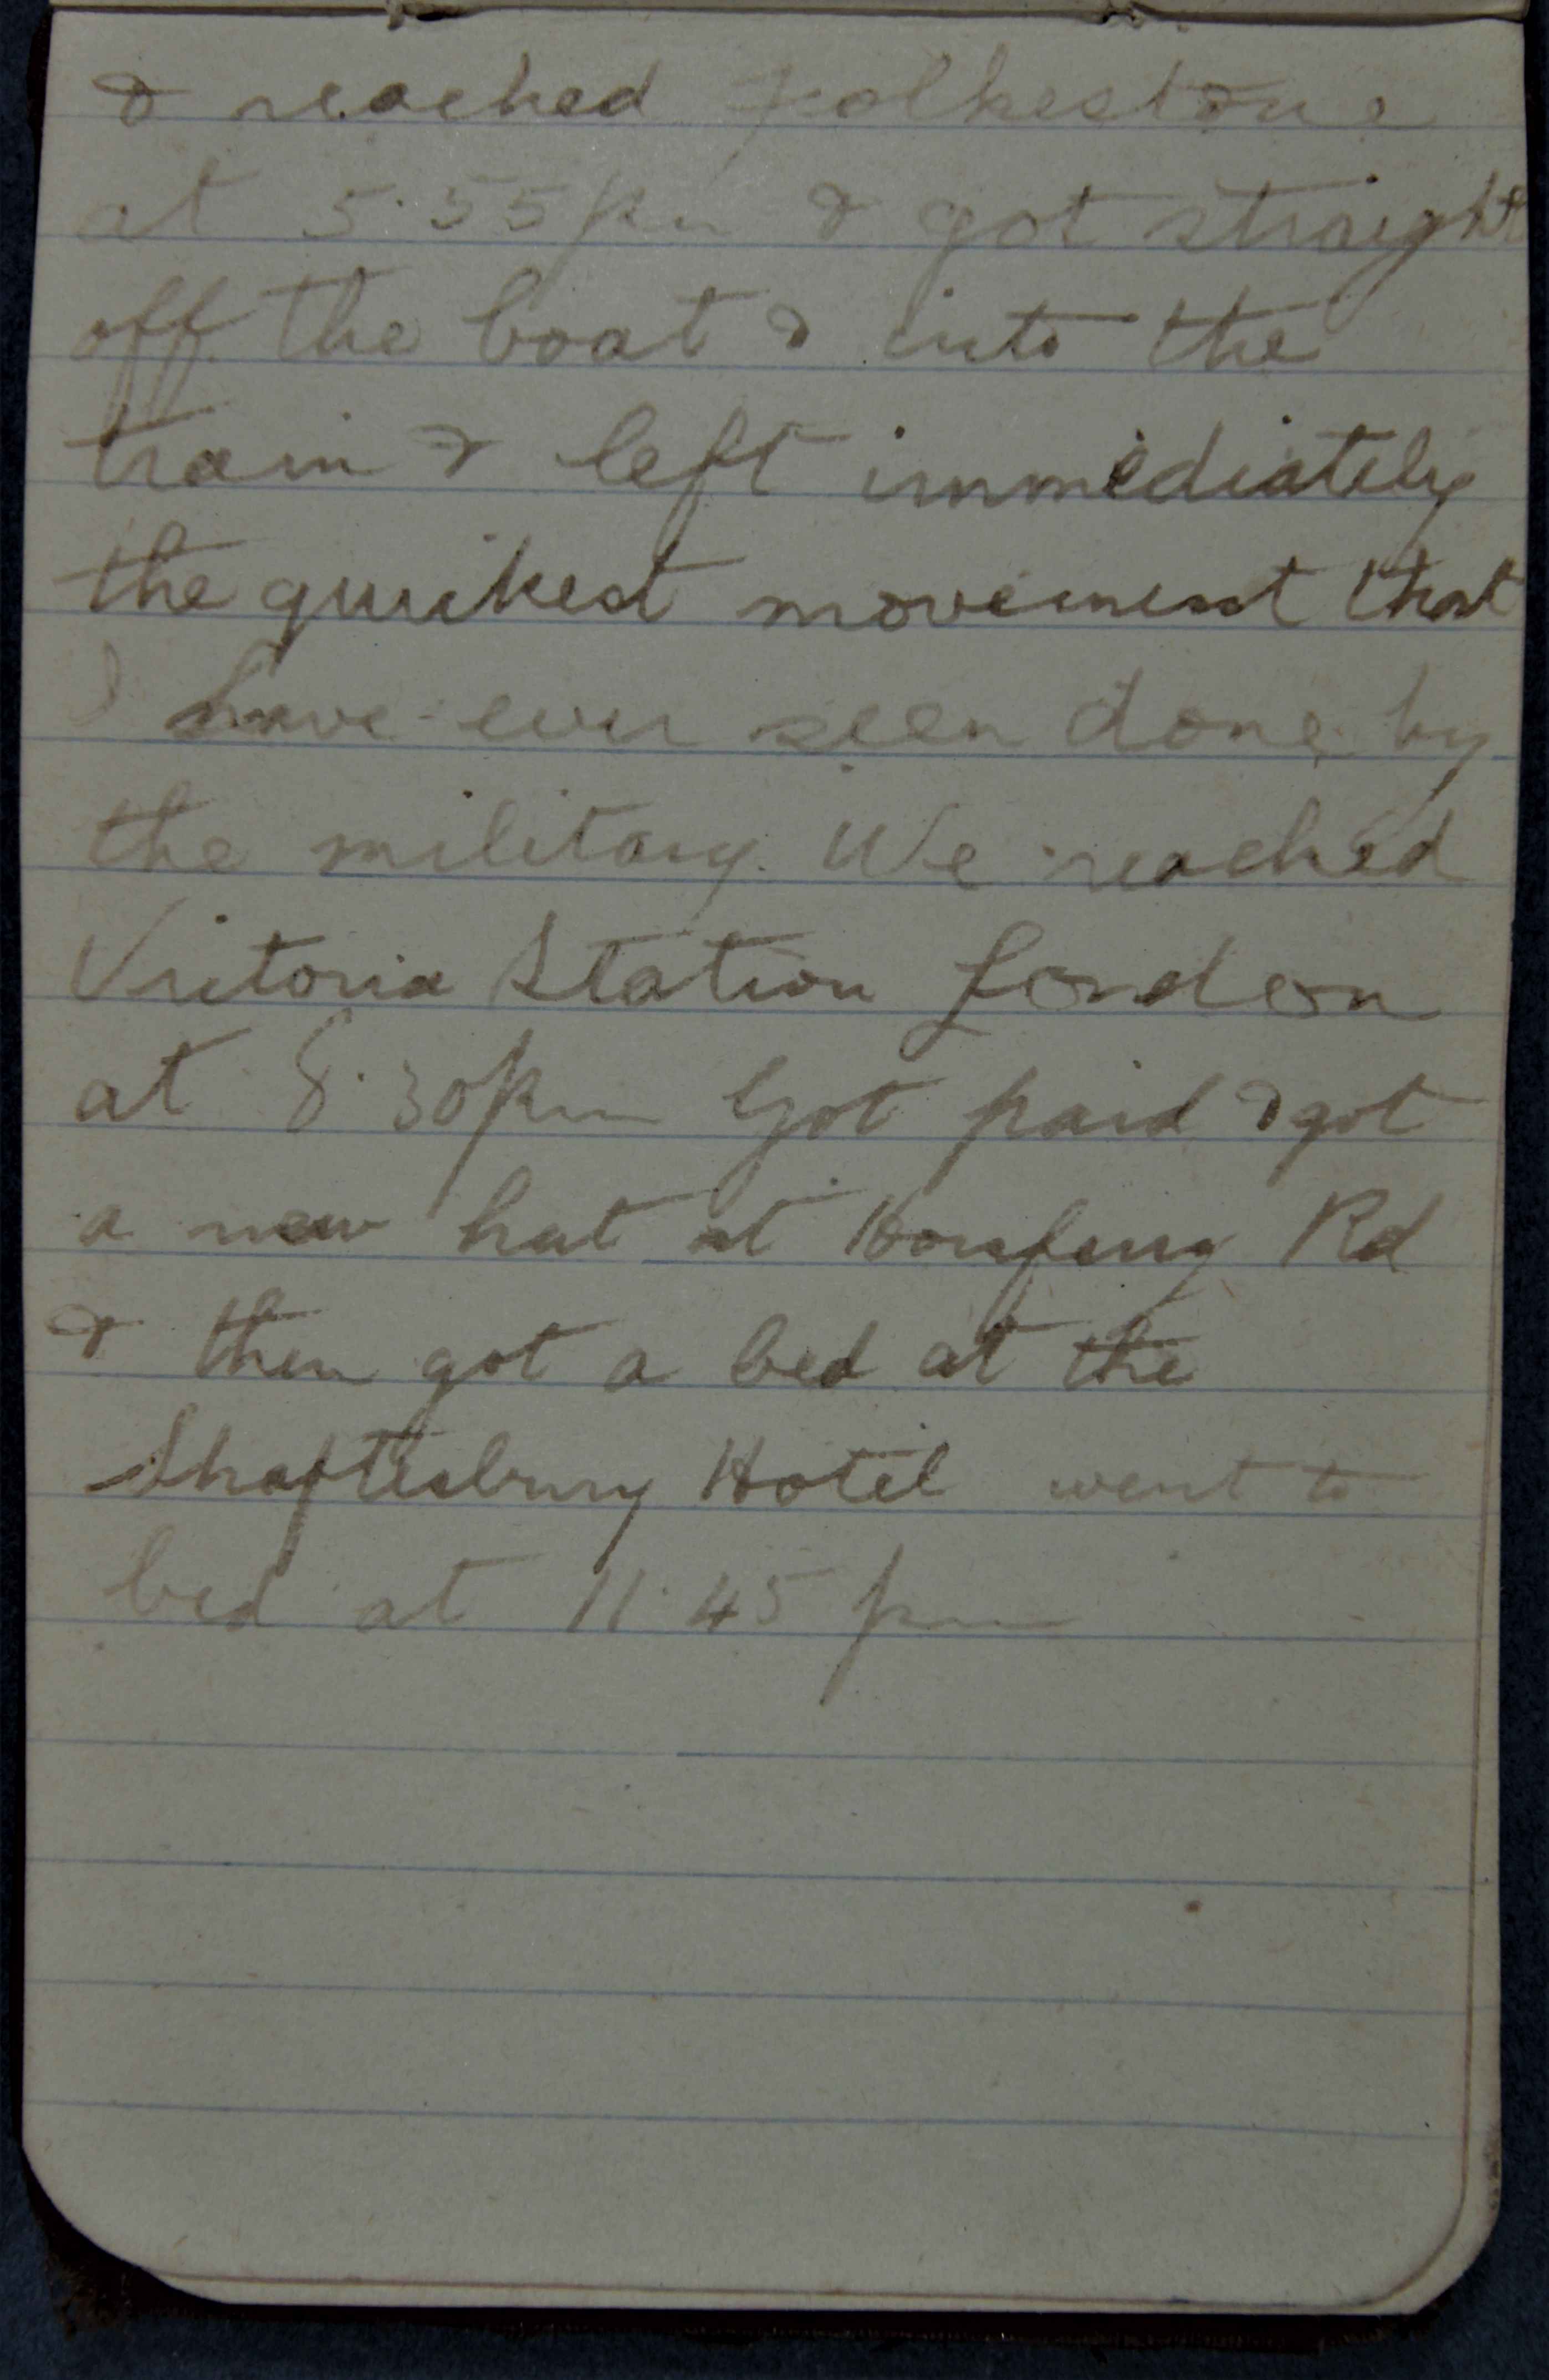 & reached Folkestone
at 5.55 pm & got straight
off the boat & into the
train & left immediately
the quickest movement that
I have ever seen done by
the military. We reached
Victoria Station London
at 8.30 pm Got paid & got
a new hat at Horsferry Rd
& then got a bed at the
Shaftesbury Hotel went to
bed at 11.45 pm